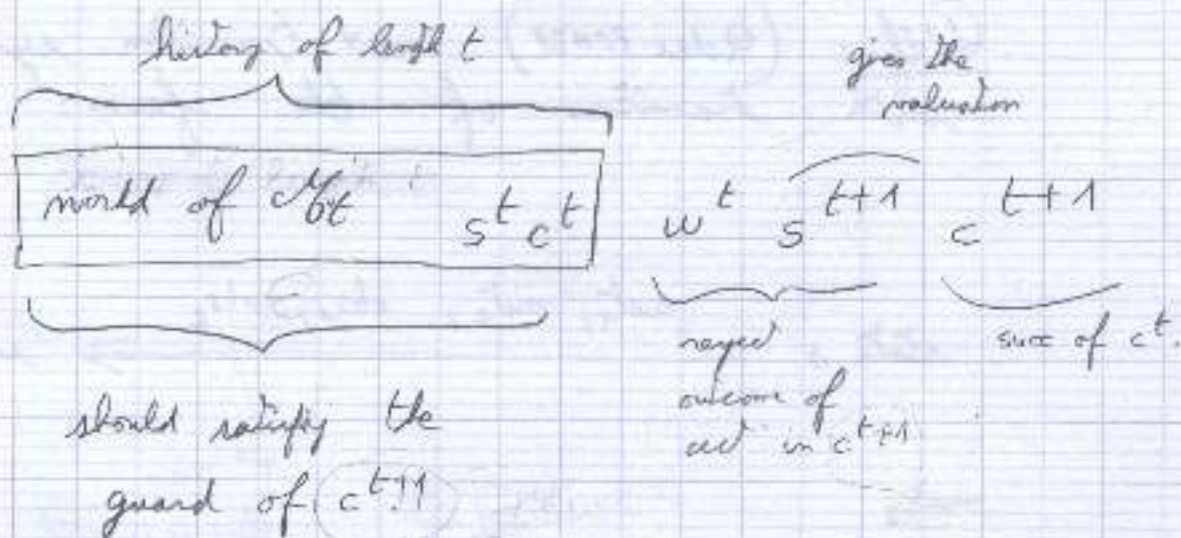 history of length t
gives the
valuation
world of M_t s^t c^t w^t s^{t+1} c^{t+1}
outcome of
act in c^{t+1}
succ of c^t.
should satisfy the
guard of c^{t+1}